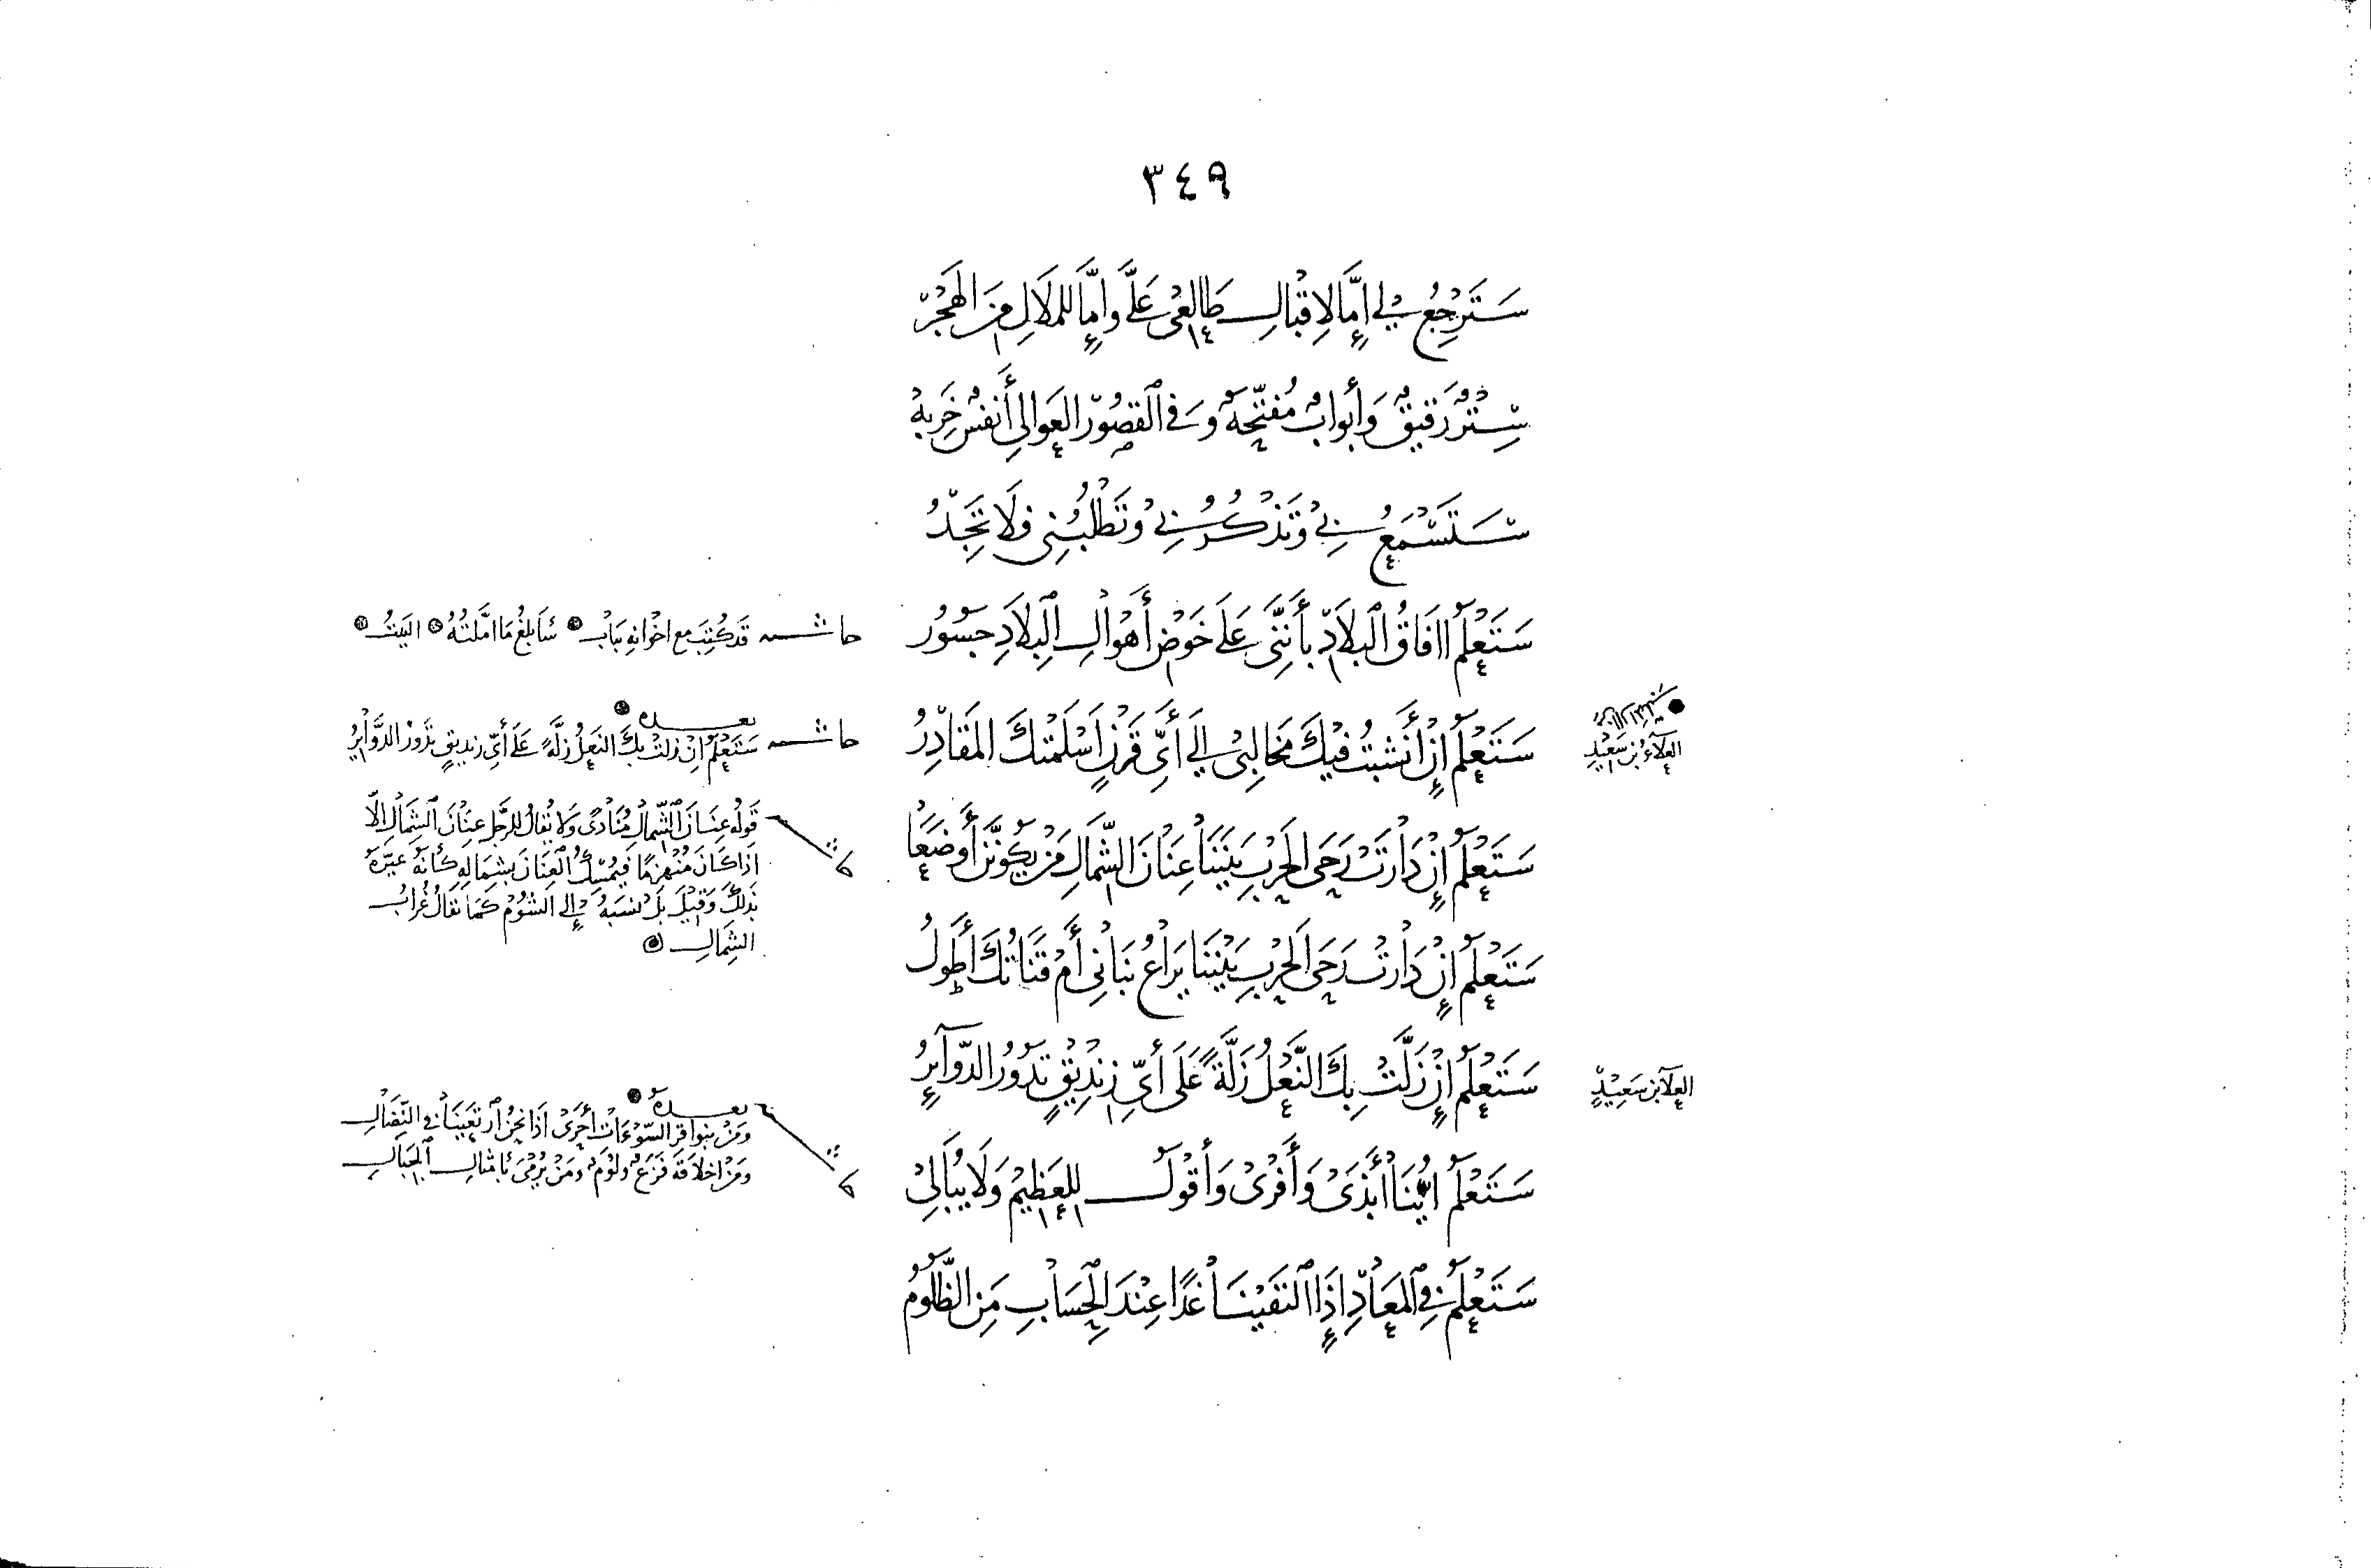 ٣٤٩
سَتَرْجِعُ لِي إِمَّا لِإِقْبَالِ طَالِعِي عَلَيَّ وَإِمَّا لِلْمَلَالِ مِنَ الْهَجْرِ
سِتْرٌ رَقِيقٌ وَأَبْوَابٌ مُفَتَّحَةٌ وَفِي الْقُصُورِ الْعَوَالِي أَنْفُسٌ خَرِبَهْ
سَتَسْمَعُ بِي وَتَذْكُرُنِي وَتَطْلُبُنِي فَلَا تَجِدُ
سَتَعْلَمُ آفَاقُ الْبِلَادِ بِأَنَّنِي عَلَى خَوْضِ أَهْوَالِ الْبِلَادِ جَسُورُ
حاشية قَدْ كُتِبَ مع اخْوَانِهِ بِبَابِ سَأَبْلُغُ مَا امَّلْتُهُ البَيْتُ
العَلَاءُ بْنُ سَعِيْدٍ
سَتَعْلَمُ إِنْ أَنْشَبْتُ فِيْكَ مَخَالِبِي إِلَى أَيِّ قَرْنٍ أَسْلَمَتْكَ الْمَقَادِرُ
حاشية بعده
سَتَعْلَمُ إِنْ زَلَّتْ بِكَ النَّعْلُ زَلَّةً عَلَى أَيِّ زِنْدِيقٍ تَدُورُ الدَّوَائِرُ
سَتَعْلَمُ إِنْ دَارَتْ رَحَى الْحَرْبِ بَيْنَنَا عِنَانَ الشِّمَالِ مَنْ يَكُونَنَّ أَوْضَعَا
قَوْلُهُ عِنَانَ الشِّمَالِ مُنَادًى وَلَا يُقَالُ لِلرَّجُلِ عِنَانَ الشِّمَالِ الَّا
اذَا كَانَ مُنْهَزِمًا فَيُمْسِكُ الْعِنَانَ بِشِمَالِهِ كَأَنَّهُ عَيَّرَهُ
بِذَلِكَ وَقِيْلَ بَلْ نَسَبَهُ إِلَى الشُّوْمِ كَمَا يُقَالُ غُرَابُ
الشِّمَالِ
سَتَعْلَمُ إِنْ دَارَتْ رَحَى الْحَرْبِ بَيْنَنَا يَرَاعُ بَنَانِي أَمْ قَنَاتُكَ أَطْوَلُ
العَلَا بْنُ سَعِيْدٍ
سَتَعْلَمُ إِنْ زَلَّتْ بِكَ النَّعْلُ زَلَّةً عَلَى أَيِّ زِنْدِيقٍ تَدُورُ الدَّوَآئِرُ
سَتَعْلَمُ أَيُّنَا أَبْذَى وَأَفْرَى وَأَقْوَلُ لِلْعَظِيْمِ وَلَا يُبَالِيْ
بعده
وَمَنْ بِنَوَاقِرِ السَّوْءَاتِ أَحْرَى اذَا نَحْنُ ارْتَمَيْنَا فِي النِّضَالِ
وَمَنْ اخْلَاقُهُ قَزَعٌ وَلُؤْمٌ وَمَنْ يُرْمَى بِأَمْثَالِ الْجِبَالِ
سَتَعْلَمُ فِي الْمَعَادِ إِذَا الْتَقَيْنَا غَدًا عِنْدَ الْحِسَابِ مَنِ الظَّلُومُ